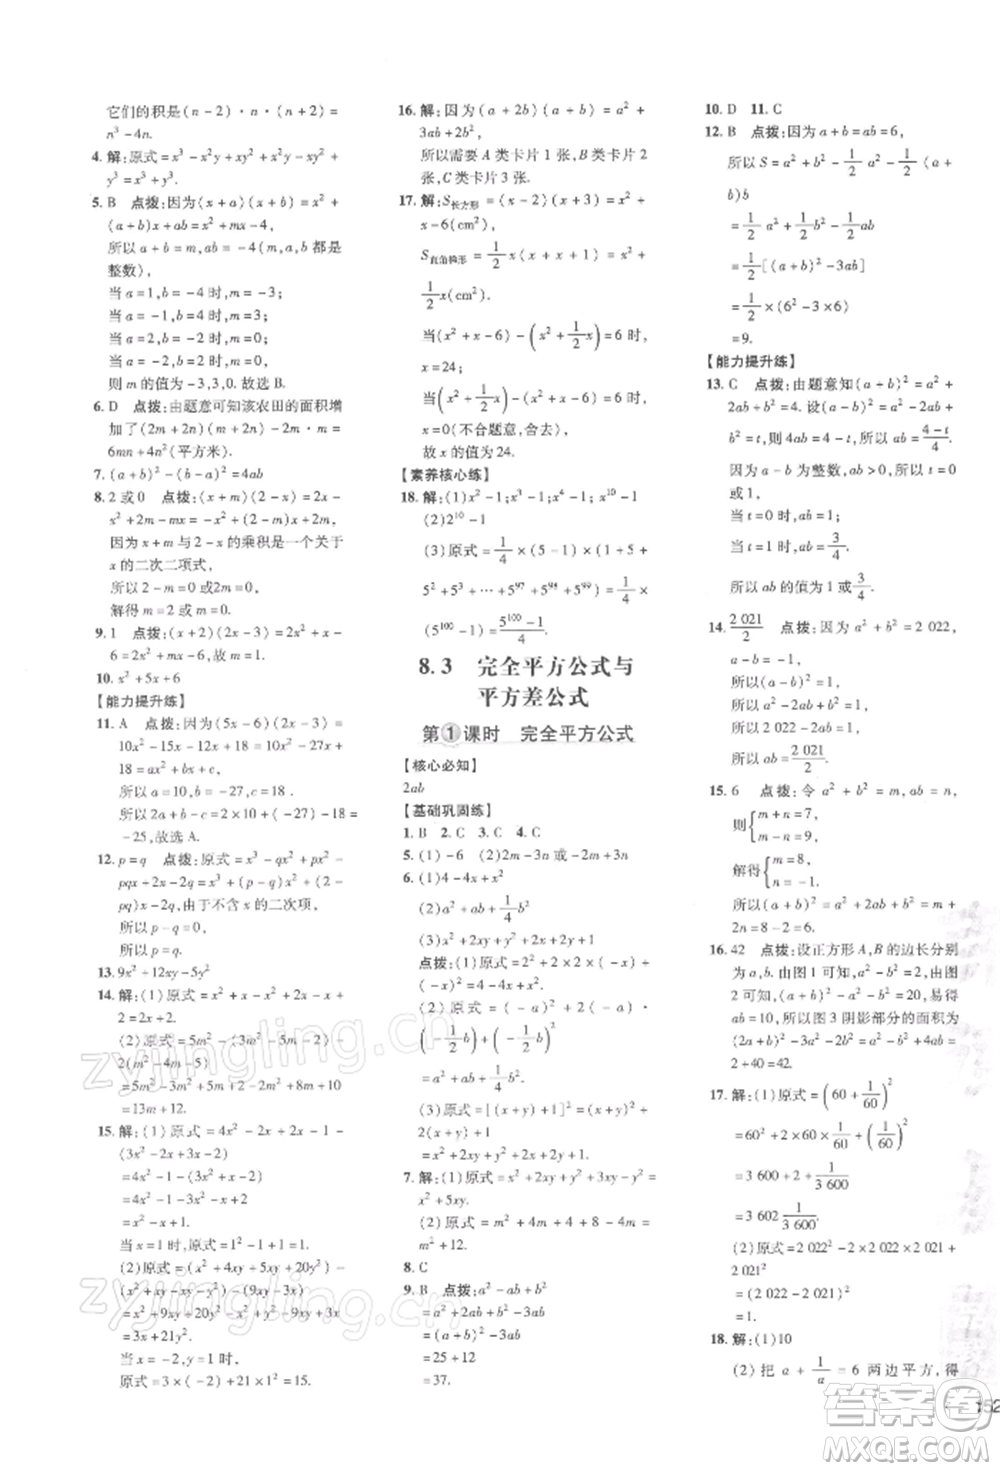 它们的积是(n－2)·n·(n＋2)＝
n³－4n.
4. 解:原式＝x³－x²y＋x²y－xy²＋
xy²－y³＝x³－y³.
5. B 点拨:因为(x＋a)(x＋b)＝x²＋
(a＋b)x＋ab＝x²＋mx－4,
所以a＋b＝m,ab＝－4(m,a,b都是
整数).
当a＝1,b＝－4时,m＝－3;
当a＝－1,b＝4时,m＝3;
当a＝2,b＝－2时,m＝0;
当a＝－2,b＝2时,m＝0.
则m的值为－3,3,0.故选B.
6. D 点拨:由题意可知该农田的面积增
加了(2m＋2n)(2m＋2n－m)＝2m²＋
6mn＋4n²(平方米).
7. (a＋b)²－(b－a)²＝4ab
8. 2或0 点拨:(x＋m)(2－x)＝2x－
x²＋2m－mx＝－x²＋(2－m)x＋2m.
因为x＋m与2－x的乘积是一个关于
x的二次二项式,
所以2－m＝0或2m＝0.
解得m＝2或m＝0.
9. 1 点拨:(x＋2)(2x－3)＝2x²＋x－
6＝x²＋mx－6.
10. x²＋5x＋6
【能力提升练】
11. A 点拨:因为(5x－6)(2x－3)＝
10x²－15x－12x＋18＝10x²－27x＋
18＝ax²＋bx＋c,
所以a＝10,b＝－27,c＝18.
所以2a＋b－c＝20＋(－27)－18＝
－25,故选A.
12. p＝q 点拨:原式＝x³－px²＋2x＋
qx²－pqx＋2q＝x³＋(q－p)x²＋(2－
pq)x＋2q,由于不含x的二次项,
所以q－p＝0.
所以p＝q.
13. 9x²＋12xy－5y²
14. 解:(1)原式＝x²－x²－2x＋2x＋
2＝2x＋2.
(2)原式＝5m²＋5m－(2m－5)·
(m²－4m－5)
＝5m²－2m²＋5m＋2m＋5
＝3m²＋7m＋5.
15. 解:(1)原式＝4x²－2x＋2x－1－
(3x²－3x＋4x－4)
＝4x²－1－3x²－x＋4
＝x²－x＋3
当x＝1时,原式＝1²－1＋3＝3.
(2)原式＝x²＋4xy＋5xy＋20y²－
(x²－4xy＋5xy－20y²)
＝x²＋9xy＋20y²－x²－xy＋20y²
当x＝－1,y＝2时,
16. 解:因为(a＋2b)(a＋b)＝a²＋
3ab＋2b²,
所以需要A类卡片1张,B类卡片2
张,C类卡片3张.
17. 解:S长方形＝(x－2)(x＋3)＝x²＋
x－6(cm²)
S直角梯形＝1/2x(x＋x＋1)＝x²＋
1/2x(cm²).
当(x²＋x－6)－(x²＋1/2x)＝6时,
x＝24;
当(x²＋1/2x)－(x²＋x－6)＝6时,
x＝0(不合题意,舍去).
故x的值为24.
【素养核心练】
18. 解:(1)x²－1;x³－1;x⁴－1;x¹⁰－1
(2)2¹⁰－1
(3)原式＝1/4×(5－1)×(1＋5＋
5²＋5³＋…＋5⁹⁷＋5⁹⁸＋5⁹⁹)＝1/4×
(5¹⁰⁰－1)＝(5¹⁰⁰－1)/4.
8.3 完全平方公式与
平方差公式
第1课时 完全平方公式
【核心必知】
2ab
【基础巩固练】
1. B 2. C 3. C 4. C
5. (1)－6 (2)2m－3n或－2m＋3n
6. (1)4－4x＋x²
(2)a²＋ab＋1/4b²
(3)x²＋2xy＋y²
点拨:(1)原式＝2²＋2×2×(－x)＋
(－x)²＝4－4x＋x².
(2)原式＝(－a)²＋2×(－a)·
(－1/2b)＋(－1/2b)²
＝a²＋ab＋1/4b².
(3)原式＝[－(x＋y)]²＝(x＋y)²＝
x²＋2xy＋y².
7. 解:(1)原式＝x²－y²＋3xy＋y²＋2xy＝
x²＋5xy.
(2)原式＝m²＋4m＋4＋8－4m＝
m²＋12.
8. C
9. B 点拨:a²－ab＋b²
＝a²＋2ab＋b²－3ab
＝(a＋b)²－3ab
＝25＋12
＝37.
10. D 11. C
12. B 点拨:因为a＋b＝ab＝6,
所以S＝a²＋b²－1/2a²－1/2b(a＋
b)
＝1/2[(a＋b)²－3ab]
＝1/2×(6²－3×6)
＝9.
【能力提升练】
13. C 点拨:由题意知(a＋b)²＝a²＋
2ab＋b²＝4.设(a－b)²＝a²－2ab＋
b²＝t,则4ab＝4－t,所以ab＝(4－t)/4.
因为a－b为整数,ab＞0,所以t＝0
或1,
当t＝0时,ab＝1;
当t＝1时,ab＝3/4.
所以ab的值为1或3/4.
14. 2 021/2 点拨:因为a²＋b²＝2 022,
a－b＝－1,
所以(a－b)²＝a²＋b²－2ab＝1.
所以2 022－2ab＝1.
所以ab＝2 021/2.
15. 6 点拨:令a²＋b²＝m,ab＝n,
则{m＋n＝7,
m－n＝9.
解得{m＝8,
n＝－1.
所以(a＋b)²＝a²＋b²＋2ab＝m＋
2n＝8－2＝6.
16. 42 点拨:设正方形A,B的边长分别
为a,b.
所以图3阴影部分的面积为
2＋40＝42.
17. 解:(1)原式＝(60＋1/60)²
＝60²＋2×60×1/60＋(1/60)²
＝3 600＋2＋1/3 600
＝3 602 1/3 600.
(2)原式＝2 022²－2×2 022×
2 021＋2 021²
＝(2 022－2 021)²
＝1.
18. 解:(1)10
(2)把a＋1/a＝6两边平方,得
zyjingling.cn
zyjingling.cn
答案圈
MXQE.COM